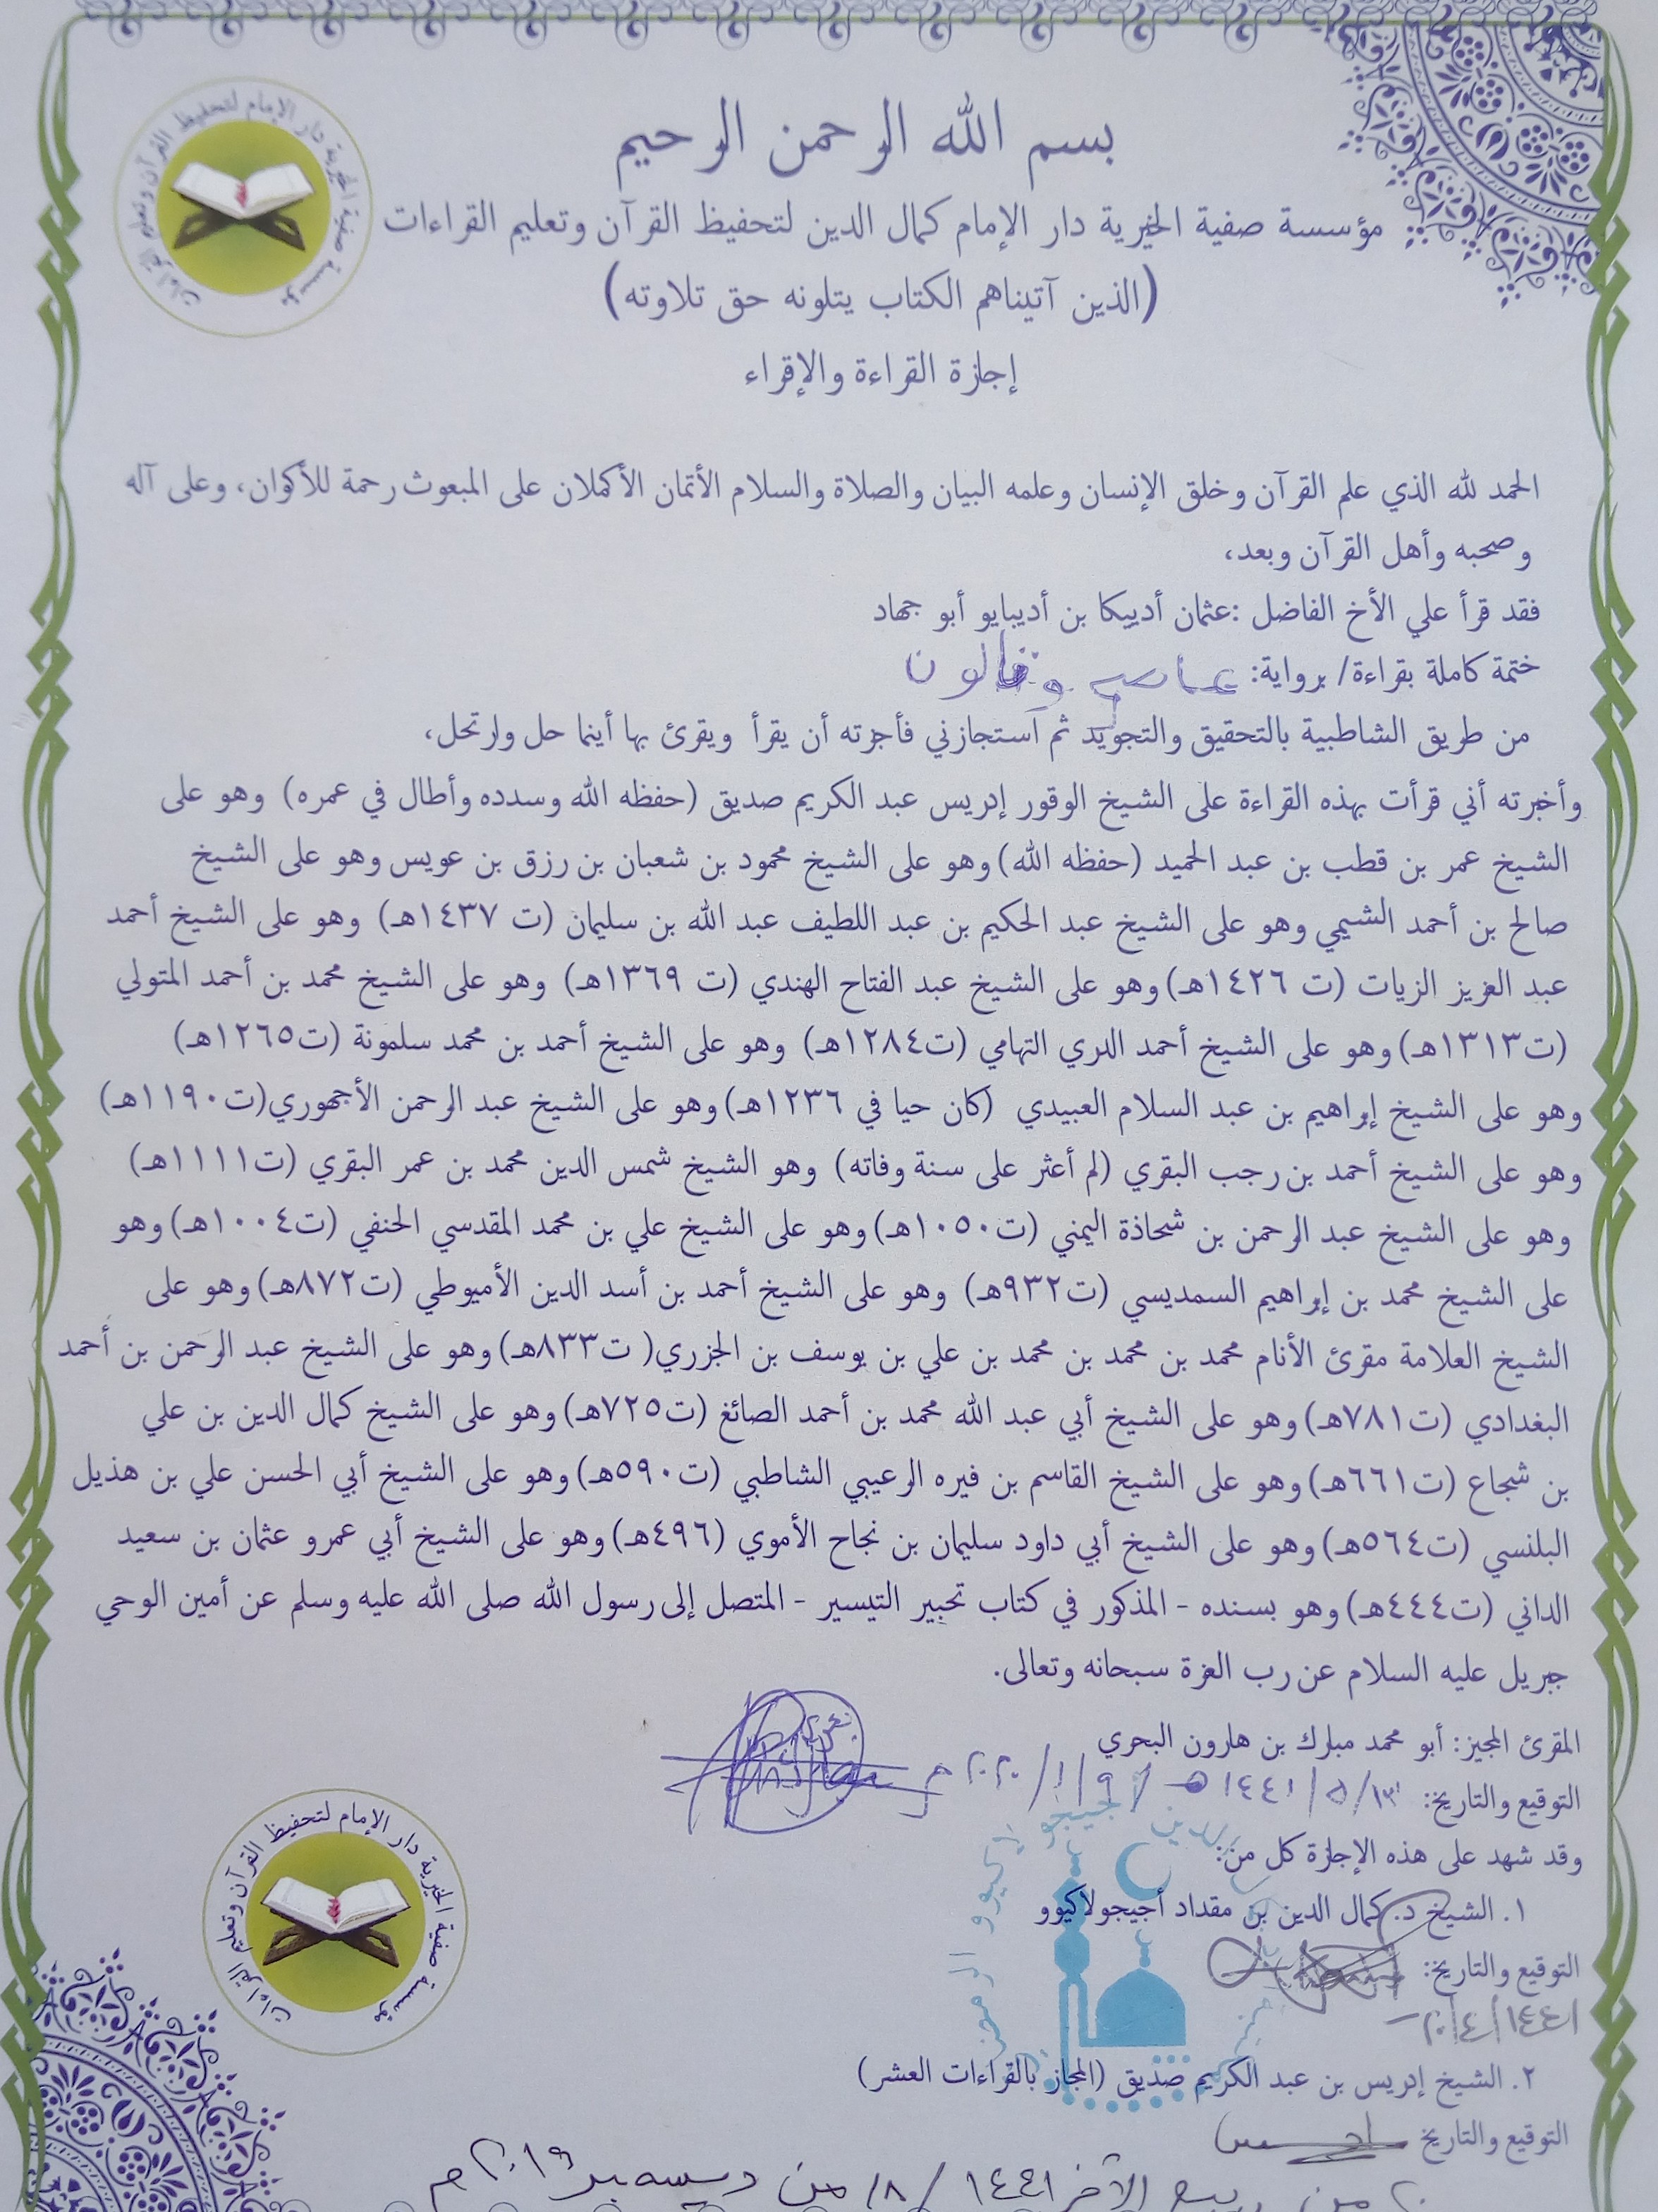 مؤسسة صفية الخيرية دار الإمام لتحفيظ القرآن وتعليم القراءات
بسم الله الرحمن الرحيم
مؤسسة صفية الخيرية دار الإمام كمال الدين لتحفيظ القرآن وتعليم القراءات
(الذين آتيناهم الكتاب يتلونه حق تلاوته)
إجازة القراءة والإقراء
الحمد لله الذي علم القرآن وخلق الإنسان وعلمه البيان والصلاة والسلام الأتمان الأكملان على المبعوث رحمة للأكوان، وعلى آله
وصحبه وأهل القرآن وبعد،
فقد قرأ علي الأخ الفاضل :عثمان أديبكا بن أديبايو أبو جهاد
ختمة كاملة بقراءة/ برواية: عاصم وقالون
من طريق الشاطبية بالتحقيق والتجويد ثم استجازني فأجزته أن يقرأ ويقرئ بها أينما حل وارتحل،
وأخبرته أني قرأت بهذه القراءة على الشيخ الوقور إدريس عبد الكريم صديق (حفظه الله وسدده وأطال في عمره) وهو على
الشيخ عمر بن قطب بن عبد الحميد (حفظه الله) وهو على الشيخ محمود بن شعبان بن رزق بن عويس وهو على الشيخ
صالح بن أحمد الشيمي وهو على الشيخ عبد الحكيم بن عبد اللطيف عبد الله بن سليمان (ت ١٤٣٧هـ) وهو على الشيخ أحمد
عبد العزيز الزيات (ت ١٤٢٦هـ) وهو على الشيخ عبد الفتاح الهندي (ت ١٣٦٩هـ) وهو على الشيخ محمد بن أحمد المتولي
(ت١٣١٣هـ) وهو على الشيخ أحمد الدري التهامي (ت١٢٨٤هـ) وهو على الشيخ أحمد بن محمد سلمونة (ت١٢٦٥هـ)
وهو على الشيخ إبراهيم بن عبد السلام العبيدي (كان حيا في ١٢٣٦هـ) وهو على الشيخ عبد الرحمن الأجهوري(ت١١٩٠هـ)
وهو على الشيخ أحمد بن رجب البقري (لم أعثر على سنة وفاته) وهو الشيخ شمس الدين محمد بن عمر البقري (ت١١١١هـ)
وهو على الشيخ عبد الرحمن بن شحاذة اليمني (ت١٠٥٠هـ) وهو على الشيخ علي بن محمد المقدسي الحنفي (ت١٠٠٤هـ) وهو
على الشيخ محمد بن إبراهيم السمديسي (ت٩٣٢هـ) وهو على الشيخ أحمد بن أسد الدين الأميوطي (ت٨٧٢هـ) وهو على
الشيخ العلامة مقرئ الأنام محمد بن محمد بن محمد بن علي بن يوسف بن الجزري( ت٨٣٣هـ) وهو على الشيخ عبد الرحمن بن أحمد
البغدادي (ت٧٨١هـ) وهو على الشيخ أبي عبد الله محمد بن أحمد الصائغ (ت٧٢٥هـ) وهو على الشيخ كمال الدين بن علي
بن شجاع (ت٦٦١هـ) وهو على الشيخ القاسم بن فيره الرعيبي الشاطبي (ت٥٩٠هـ) وهو على الشيخ أبي الحسن علي بن هذيل
البلنسي (ت٥٦٤هـ) وهو على الشيخ أبي داود سليمان بن نجاح الأموي (٤٩٦هـ) وهو على الشيخ أبي عمرو عثمان بن سعيد
الداني (ت٤٤٤هـ) وهو بسنده - المذكور في كتاب تحبير التيسير - المتصل إلى رسول الله صلى الله عليه وسلم عن أمين الوحي
جبريل عليه السلام عن رب العزة سبحانه وتعالى.
المقرئ المجيز: أبو محمد مبارك بن هارون البحري
التوقيع والتاريخ: ١٣/٥/١٤٤١هـ ٩/١/٢٠٢٠م
وقد شهد على هذه الإجازة كل من:
١. الشيخ د. كمال الدين بن مقداد أجيجولاكيوو
التوقيع والتاريخ:
٢٠/٤/١٤٤١
٢. الشيخ إدريس بن عبد الكريم صديق (المجاز بالقراءات العشر)
التوقيع والتاريخ
من ربيع الآخر ١٤٤١ / ١٨ من ديسمبر ٢٠١٩م
مؤسسة صفية الخيرية دار الإمام لتحفيظ القرآن وتعليم القراءات